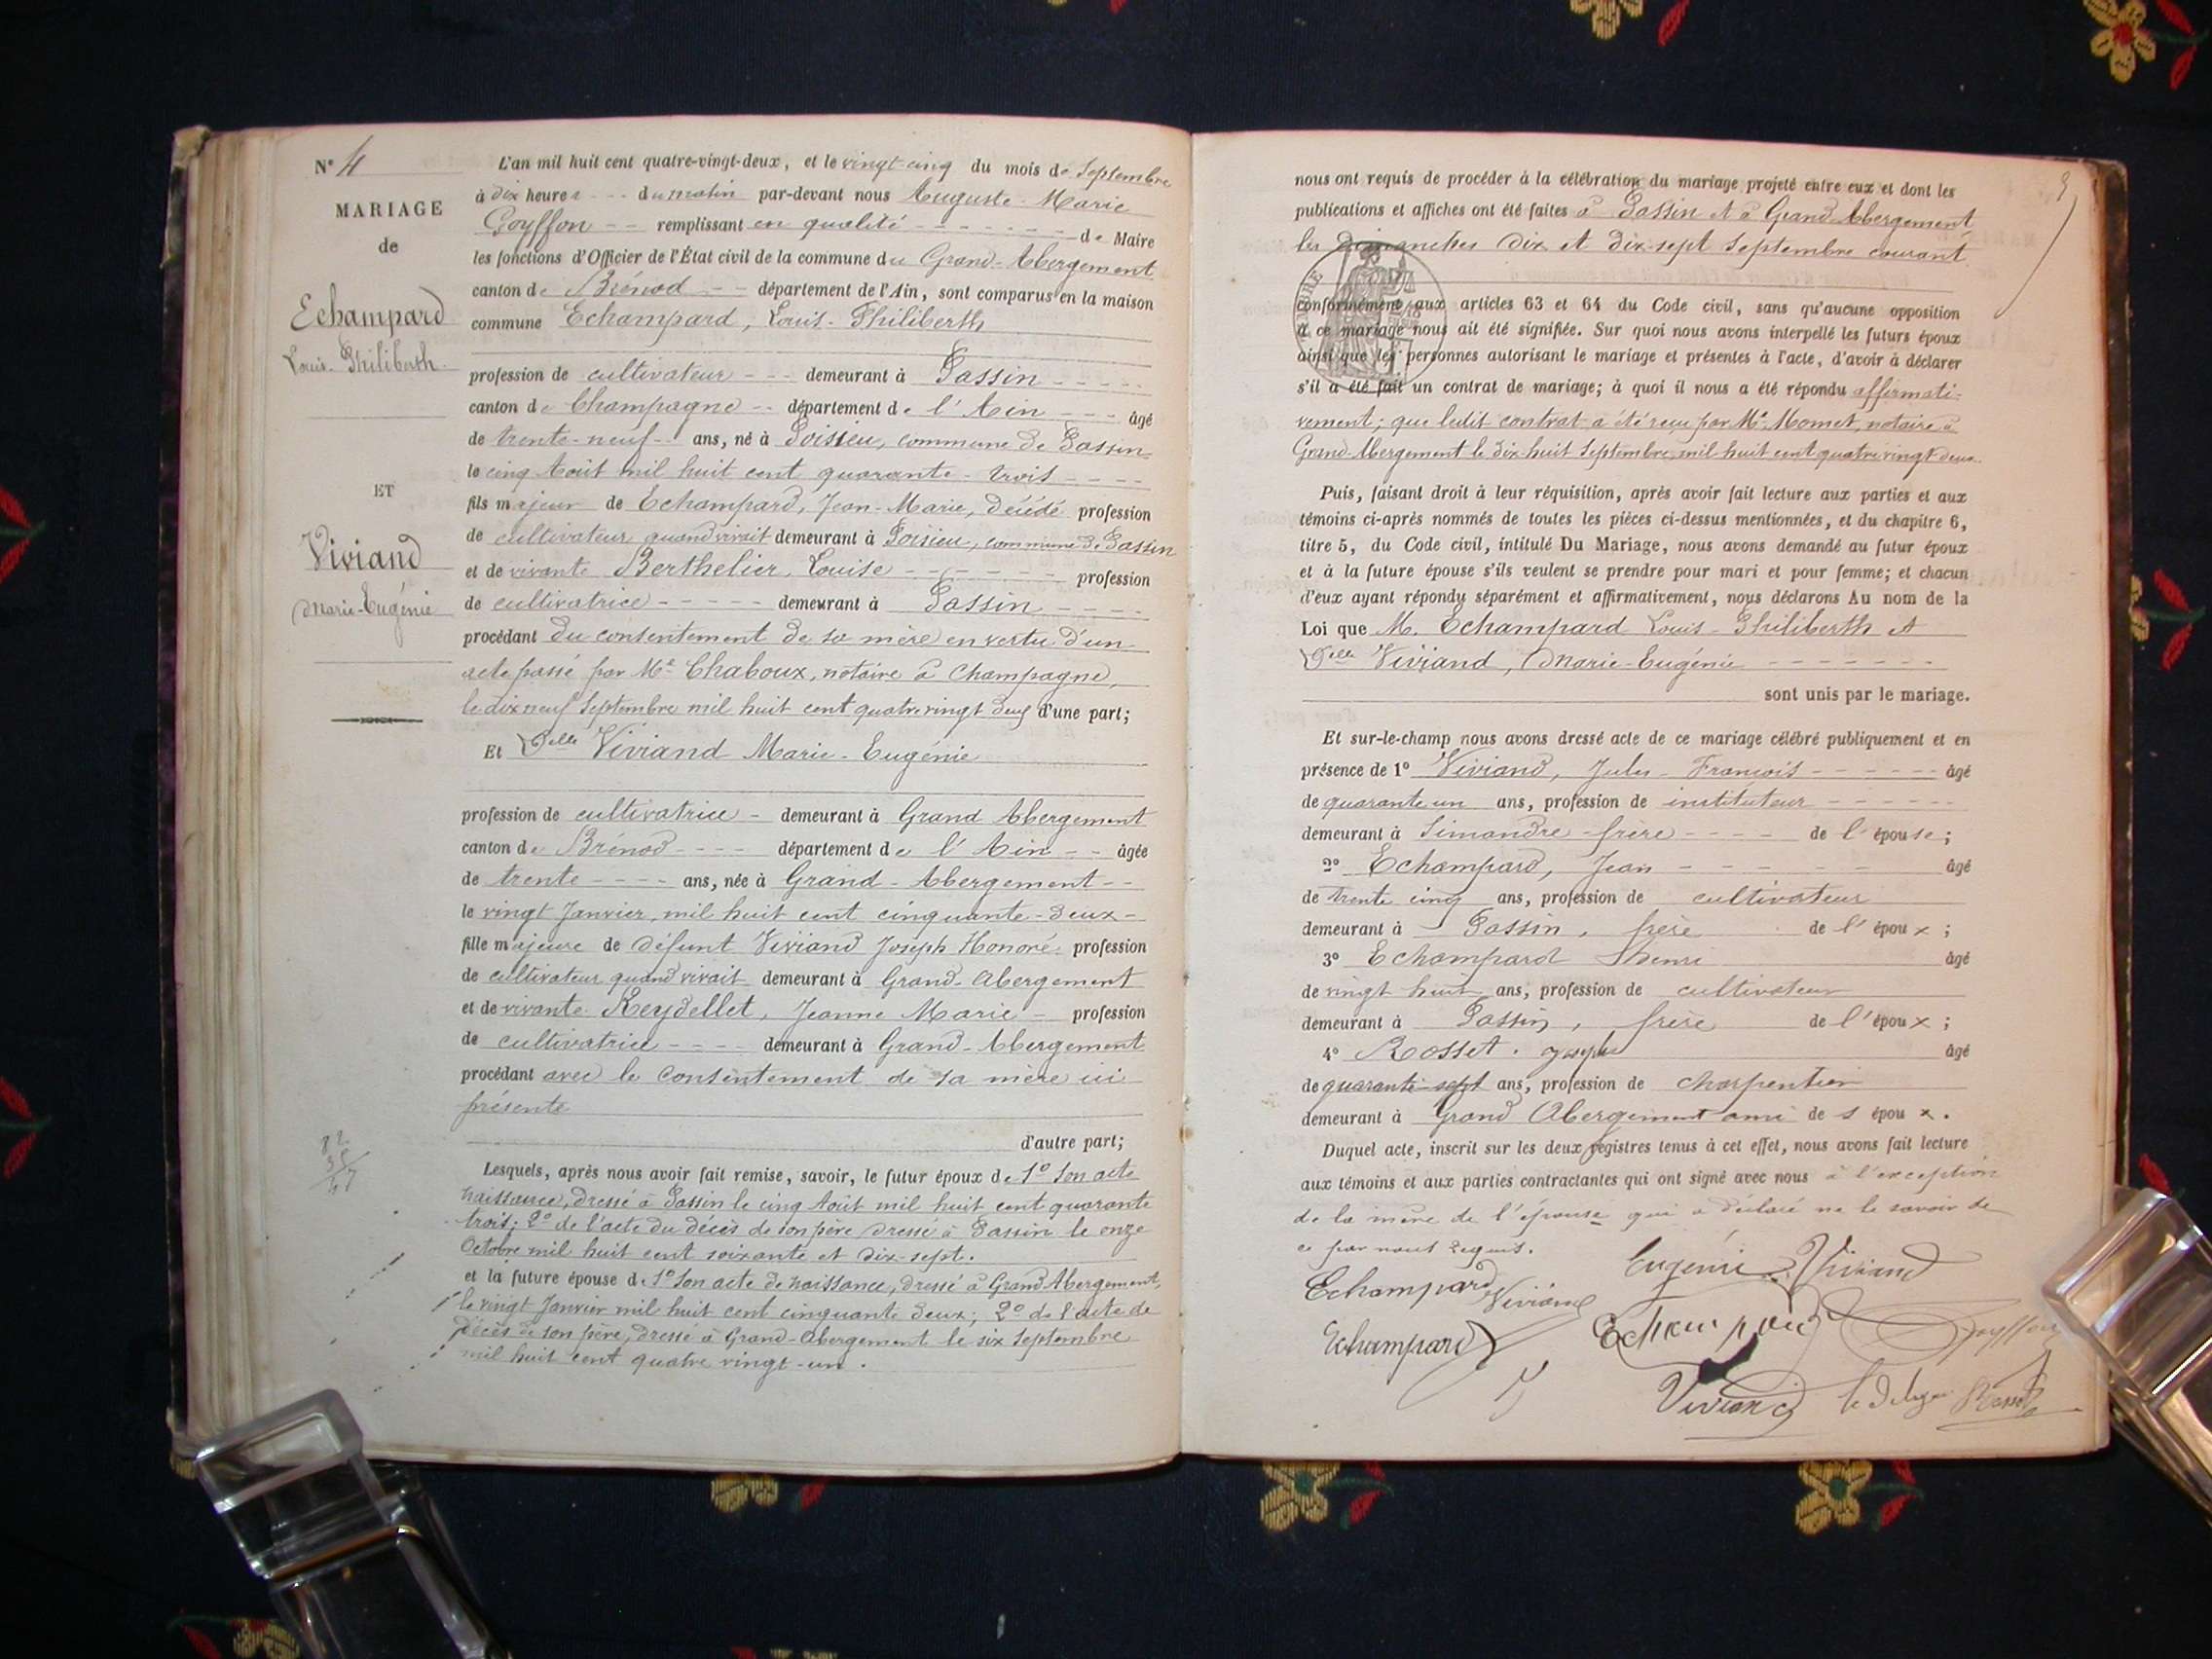 N° 4
MARIAGE
de
Echampard
Louis-Philiberth
ET
Viviand
Marie-Eugénie
L'an mil huit cent quatre-vingt-deux, et le vingt-cinq du mois de Septembre
à dix heures du matin par-devant nous Auguste-Marie
Goyffon remplissant en qualité de Maire
les fonctions d'Officier de l'État civil de la commune du Grand-Abergement
canton de Brénod département de l'Ain, sont comparus en la maison
commune Echampard, Louis-Philiberth
profession de cultivateur demeurant à Passin
canton de Champagne département de l'Ain âgé
de trente-neuf ans, né à Poisieu, commune de Passin
le cinq Août mil huit cent quarante-trois
fils majeur de Echampard, Jean-Marie, décédé profession
de cultivateur quand vivait demeurant à Poisieu, commune de Passin
et de vivante Berthelier, Louise profession
de cultivatrice demeurant à Passin
procédant du consentement de sa mère en vertu d'un
acte passé par Me Chaboux, notaire à Champagne,
le dix neuf Septembre mil huit cent quatre vingt deux d'une part;
Et Delle Viviand Marie-Eugénie
profession de cultivatrice demeurant à Grand Abergement
canton de Brénod département de l'Ain âgée
de trente ans, née à Grand-Abergement
le vingt Janvier, mil huit cent cinquante-deux
fille majeure de défunt Viviand Joseph Honoré profession
de cultivateur quand vivait demeurant à Grand-Abergement
et de vivante Reydellet, Jeanne Marie profession
de cultivatrice demeurant à Grand-Abergement
procédant avec le consentement de sa mère ici
présente
d'autre part;
Lesquels, après nous avoir fait remise, savoir, le futur époux de 1° Son acte
naissance, dressé à Passin le cinq Août mil huit cent quarante
trois; 2° de l'acte du décès de son père dressé à Passin le onze
Octobre mil huit cent soixante et dix-sept.
et la future épouse de 1° Son acte de naissance, dressé à Grand Abergement,
le vingt Janvier mil huit cent cinquante deux; 2° de l'acte de
décès de son père, dressé à Grand-Abergement le six Septembre
mil huit cent quatre vingt-un.
nous ont requis de procéder à la célébration du mariage projeté entre eux et dont les
publications et affiches ont été faites à Passin et à Grand Abergement
les dimanches dix et dix-sept Septembre courant
conformément aux articles 63 et 64 du Code civil, sans qu'aucune opposition
à ce mariage nous ait été signifiée. Sur quoi nous avons interpellé les futurs époux
ainsi que les personnes autorisant le mariage et présentes à l'acte, d'avoir à déclarer
s'il a été fait un contrat de mariage; à quoi il nous a été répondu affirmati-
vement; que ledit contrat a été reçu par Me Momet, notaire à
Grand-Abergement le dix-huit Septembre mil huit cent quatre vingt deux.
Puis, faisant droit à leur réquisition, après avoir fait lecture aux parties et aux
témoins ci-après nommés de toutes les pièces ci-dessus mentionnées, et du chapitre 6,
titre 5, du Code civil, intitulé Du Mariage, nous avons demandé au futur époux
et à la future épouse s'ils veulent se prendre pour mari et pour femme; et chacun
d'eux ayant répondu séparément et affirmativement, nous déclarons Au nom de la
Loi que M. Echampard Louis-Philiberth et
Delle Viviand, Marie-Eugénie
sont unis par le mariage.
Et sur-le-champ nous avons dressé acte de ce mariage célébré publiquement et en
présence de 1° Viviand, Jules-François âgé
de quarante un ans, profession de instituteur
demeurant à Simandre frère de l'épouse;
2° Echampard, Jean âgé
de trente cinq ans, profession de cultivateur
demeurant à Passin, frère de l'époux;
3° Echampard Henri âgé
de vingt huit ans, profession de cultivateur
demeurant à Passin, frère de l'époux;
4° Rosset Joseph âgé
de quarante-sept ans, profession de charpentier
demeurant à Grand Abergement ami de s époux.
Duquel acte, inscrit sur les deux registres tenus à cet effet, nous avons fait lecture
aux témoins et aux parties contractantes qui ont signé avec nous à l'exception
de la mère de l'épouse qui a déclaré ne le savoir de
ce par nous requis.
Eugénie Viviand
Echampard Viviand
Echampard Echampard Goyffon
Viviand Rosset